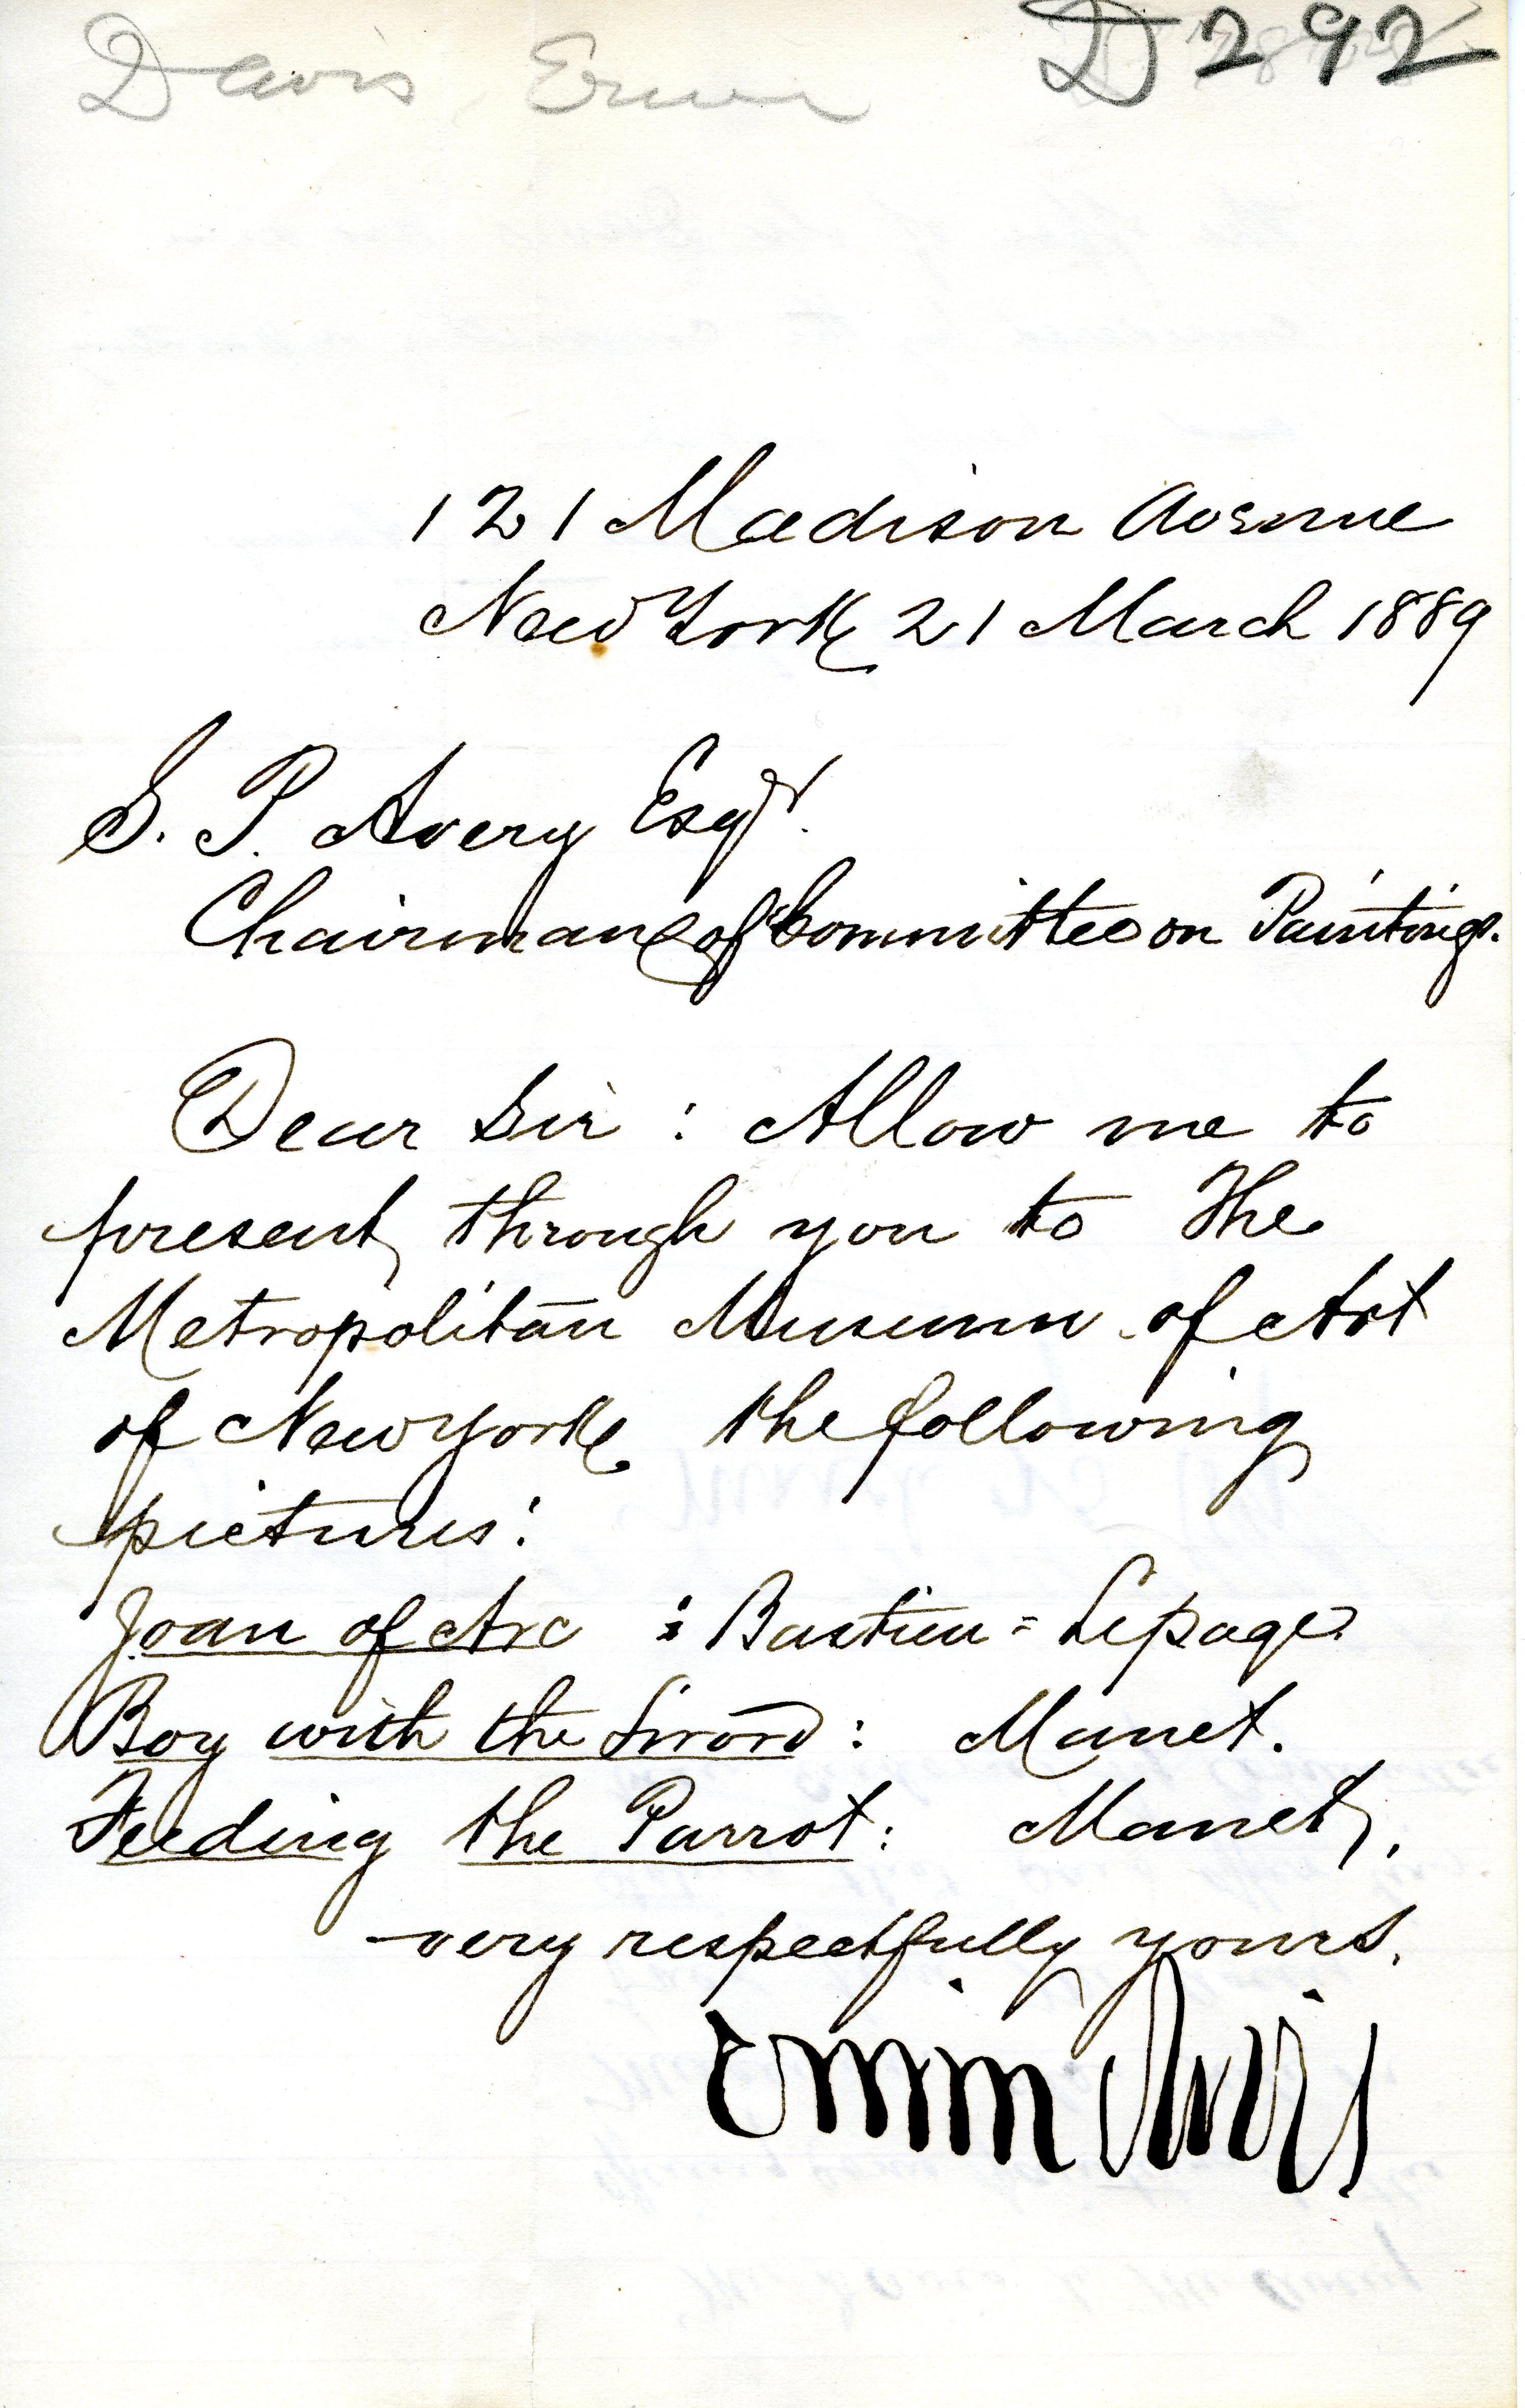 Davis Erwin
D 292
121 Madison Avenue
New York 21 March 1889
S. P. Avery Esqr.
Chairman of Committee on Paintings.
Dear Sir : Allow me to
present through you to The
Metropolitan Museum of Art
of New York the following
pictures:
Joan of Arc : Bastien=Lepage
Boy with the Sword : Manet.
Feeding the Parrot : Manet.
very respectfully yours.
Erwin Davis